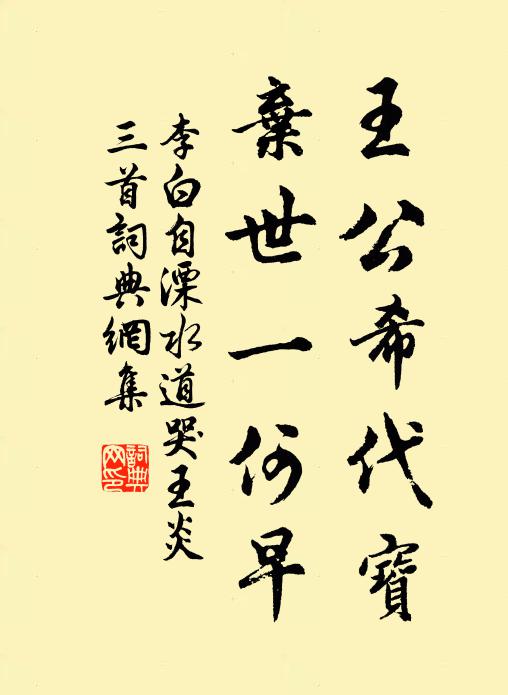 王公希代寶
棄世一何早
李白自溧水道哭王炎
三首詞典網集
詞典網印